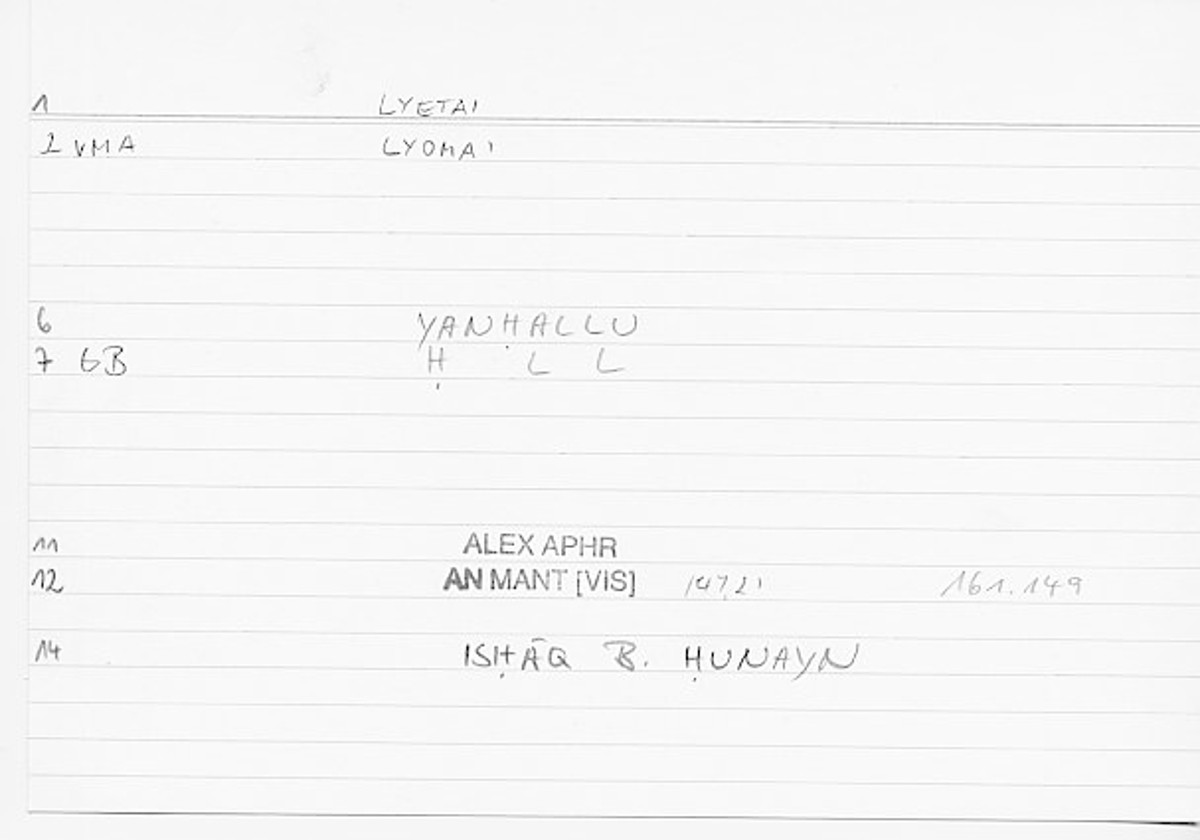 1 LYETAI
2 VMA LYOMAI
6 YANḤALLU
7 GB Ḥ L L
11 ALEX APHR
12 AN MANT [VIS] 147,21 161.149
14 ISḤĀQ B. ḤUNAYN